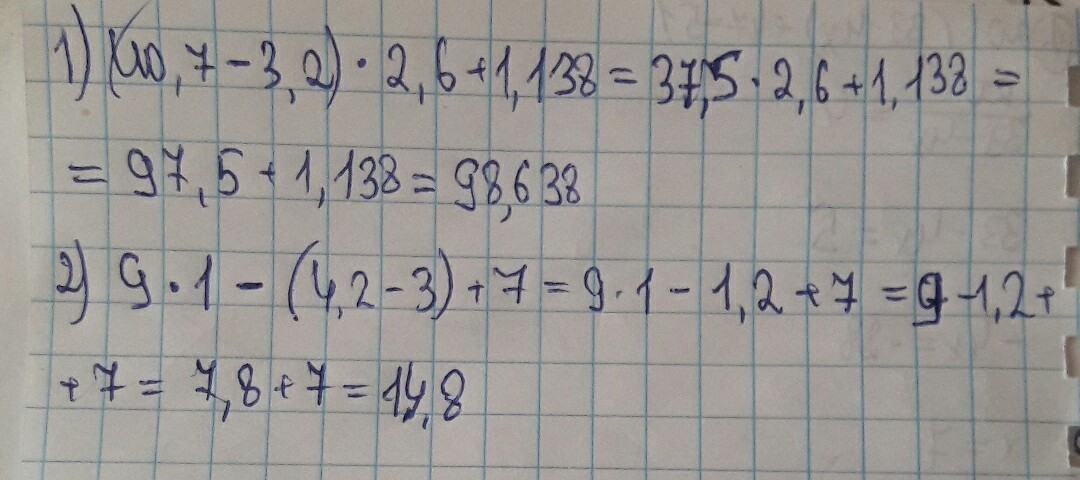 1) (40,7-3,2)·2,6+1,138=37,5·2,6+1,138=
=97,5+1,138=98,638
2) 9·1-(4,2-3)+7=9·1-1,2+7=9-1,2+
+7=7,8+7=14,8